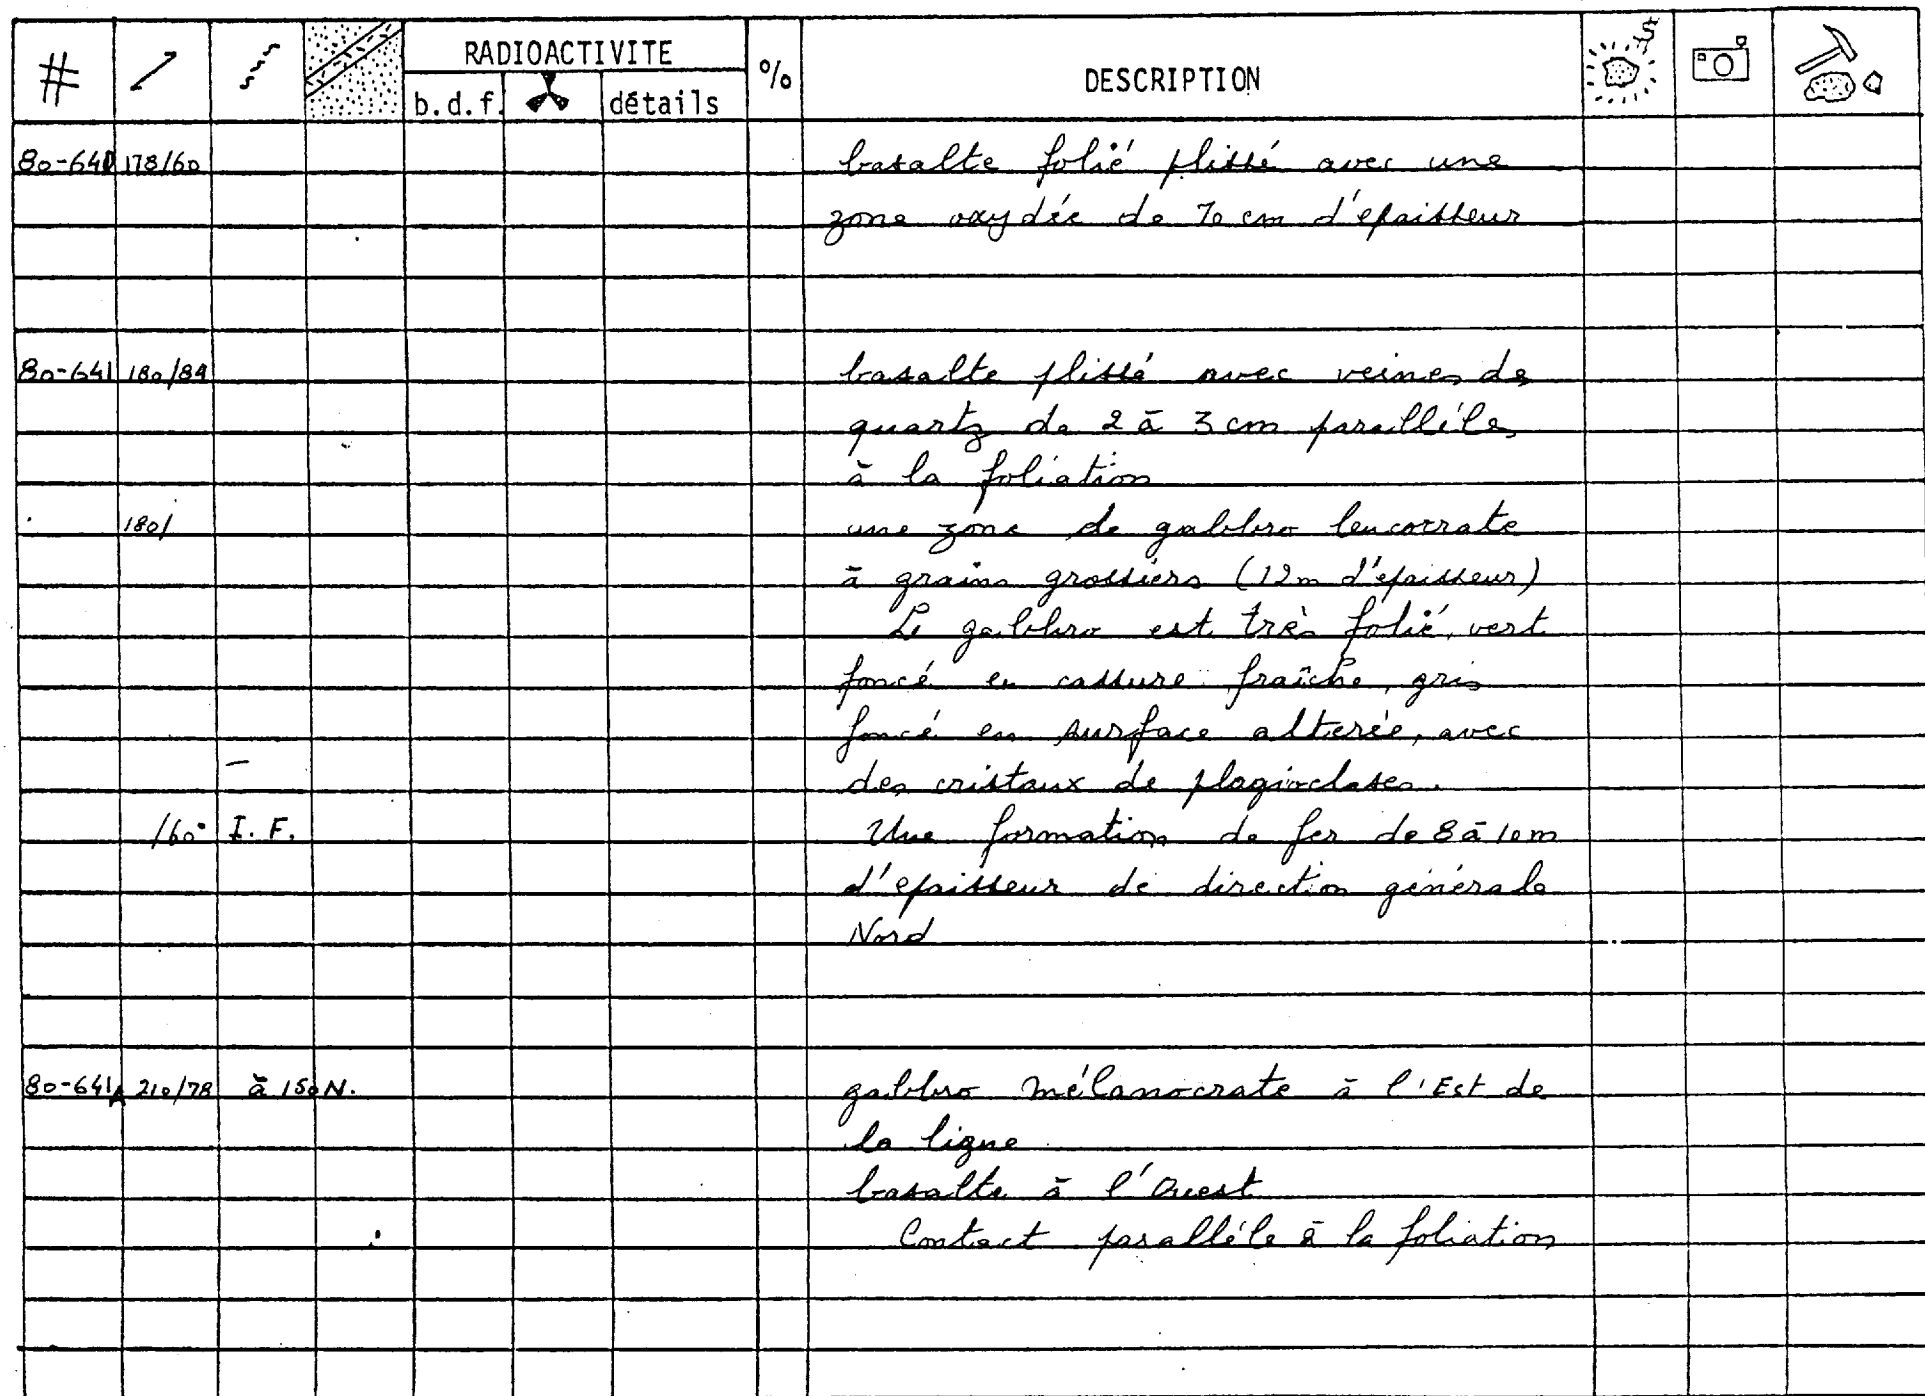 # RADIOACTIVITE % DESCRIPTION $
b.d.f. détails
80-640 178/60 basalte folié plissé avec une
zone oxydée de 70 cm d'epaisseur
80-641 180/84 basalte plissé avec veines de
quartz de 2 à 3 cm parallèles
à la foliation
180/ une zone de gabbro leucocrate
à grains grossiers (12m d'epaisseur)
Le gabbro est très folié, vert
foncé en cassure fraîche, gris
foncé en surface alterée, avec
des cristaux de plagioclases.
/60° I.F. Une formation de fer de 8 à 10m
d'epaisseur de direction générale
Nord
80-641A 210/78 à 150N. gabbro mélanocrate à l'Est de
la ligne
basalte à l'Ouest
Contact parallèle à la foliation